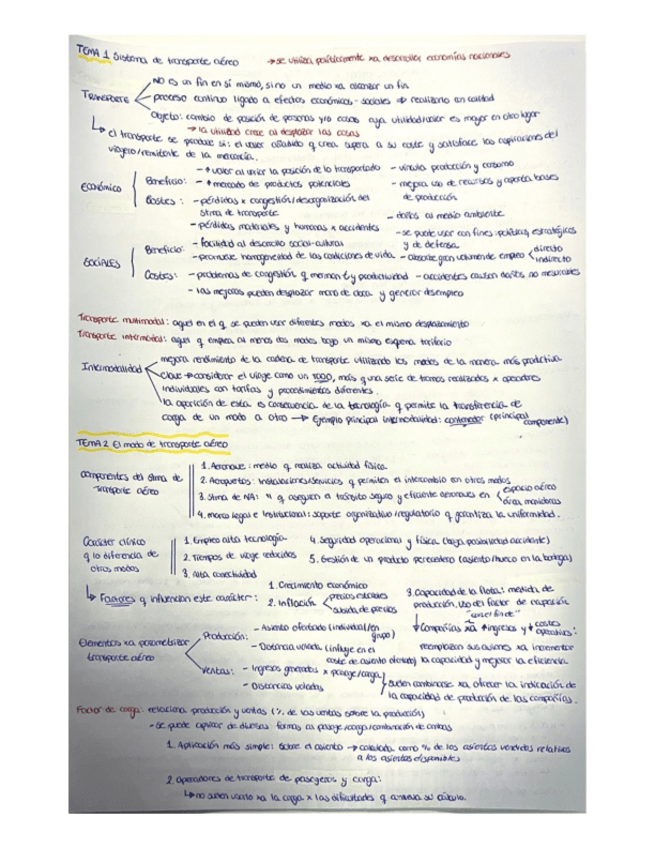 TEMA 1 Sistema de transporte aéreo → se utiliza políticamente xa desarrollar economías nacionales
NO es un fin en sí mismo, sino un medio xa alcanzar un fin
TRANSPORTE proceso continuo ligado a efectos económicos - sociales ⇒ realizarlo en calidad
Objeto: cambio de posición de personas y/o cosas cuya utilidad/valor es mayor en otro lugar
→ la utilidad crece al desplazar las cosas
↳ el transporte se produce si: el valor añadido q crea supera a su coste y satisface las aspiraciones del
viajero/remitente de la mercancía.
ECONÓMICO
Beneficio: - + valor al variar la posición de lo transportado - vincula producción y consumo
- + mercado de productos potenciales - mejora uso de recursos y aporta bases
de producción
Costes: - pérdidas x congestión/desorganización del
stma de transporte - daños al medio ambiente
- pérdidas materiales y humanas x accidentes
SOCIALES
Beneficio: - facilidad al desarrollo social-cultural - se puede usar con fines: políticos, estratégicos
y de defensa.
- promueve homogeneidad de las condiciones de vida. - absorbe gran volumen de empleo directo
indirecto
Costes: - problemas de congestión q merman t y productividad - accidentes causan daños no mesurables
- las mejoras pueden desplazar mano de obra y generar desempleo
Transporte multimodal: aquel en el q se pueden usar diferentes modos xa el mismo desplazamiento
Transporte intermodal: aquel q emplea al menos dos modos bajo un mismo esquema tarifario
mejora rendimiento de la cadena de transporte utilizando los modos de la manera más productiva
Intermodalidad clave → considerar el viaje como un TODO, más q una serie de tramos realizados x operadores
individuales con tarifas y procedimientos diferentes.
la aparición de esta es consecuencia de la tecnología q permite la transferencia de
carga de un modo a otro → Ejemplo principal intermodalidad: contenedor (principal
componente)
TEMA 2 El modo de transporte aéreo
componentes del stma de
transporte aéreo
1. Aeronave: medio q realiza actividad física.
2. Aeropuertos: instalaciones/servicios q permiten el intercambio con otros modos
3. Stma de NA: " q aseguren el tránsito seguro y eficiente aeronaves en espacio aéreo
áreas maniobras
4. marco legal e institucional: soporte organizativo/regulatorio q garantiza la uniformidad.
Carácter clínico
q lo diferencia de
otros modos
1. Empleo alta tecnología 4. Seguridad operacional y física. (baja posibilidad accidente)
2. Tiempos de viaje reducidos 5. Gestión de un producto perecedero (asiento/hueco en la bodega)
3. Alta conectividad
↳ Factores q influencian este carácter: 1. Crecimiento económico
2. Inflación
subida de precios
3. Capacidad de la flota: medida de
producción. Uso del factor de ocupación
↓ Compañías xa ↑ ingresos y ↓ costes
operativos:
reemplazan sus aviones xa incrementar
la capacidad y mejorar la eficiencia.
Elementos xa parametrizar
transporte aéreo
Producción: - Asiento ofertado (individual/en
grupo)
- Distancia volada (influye en el
coste de asiento ofertado)
Ventas: - Ingresos generados x pasaje/carga
- Distancias voladas
suelen combinarse xa ofrecer la indicación de
la capacidad de producción de las compañías.
Factor de carga: relaciona producción y ventas (% de las ventas sobre la producción)
- se puede aplicar de diversas formas al pasaje/carga/combinación de ambas
1. Aplicación más simple: sobre el asiento → calculada como % de los asientos vendidos relativos
a los asientos disponibles
2. Operadores de transporte de pasajeros y carga:
↳ no suelen usarlo xa la carga x las dificultades q su cálculo.